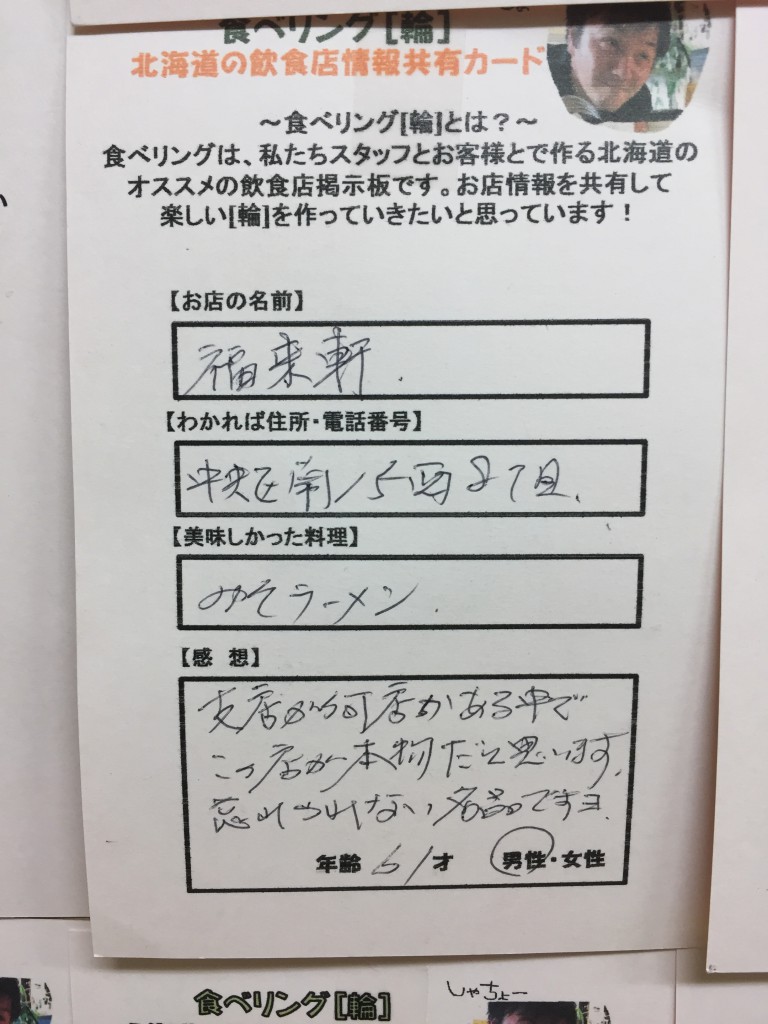 食べリング[輪]
北海道の飲食店情報共有カード
～食べリング[輪]とは？～
食べリングは、私たちスタッフとお客様とで作る北海道の
オススメの飲食店掲示板です。お店情報を共有して
楽しい[輪]を作っていきたいと思っています！
【お店の名前】
福来軒.
【わかれば住所・電話番号】
中央区南15西8丁目.
【美味しかった料理】
みそラーメン.
【感 想】
支店が何店かある中で
この店が本物だと思います.
忘れられない名品ですヨ.
年齢 61才 男性・女性
食べリング[輪]
しゃちょー